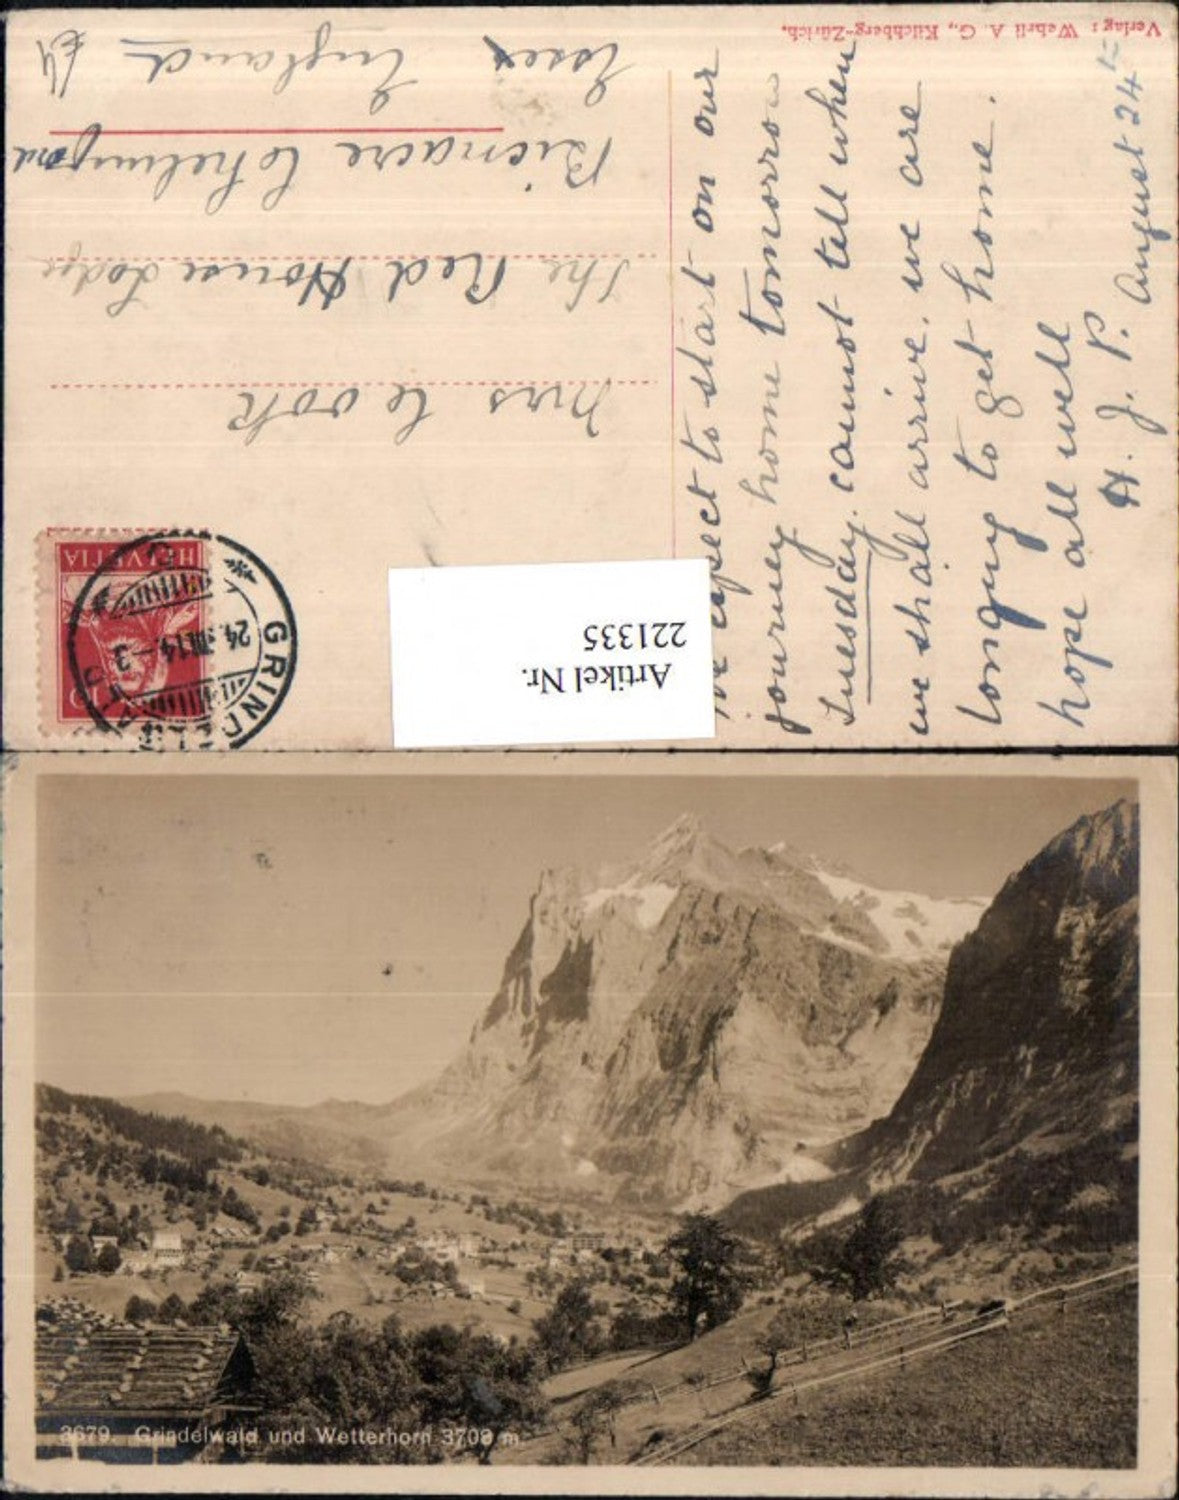 Verlag: Wehrli A. G., Kilchberg-Zürich.
August 24th
We expect to start on our
journey home tomorrow
Tuesday. cannot tell when
we shall arrive. we are
longing to get home.
hope all well
H. J. P.
HELVETIA
10
GRINDELWALD
24. VIII. 14 – 3
Mrs Cook
The Red House Lodge
Chelmsford
Essex
England
Artikel Nr.
221335
3679. Grindelwald und Wetterhorn 3703 m.